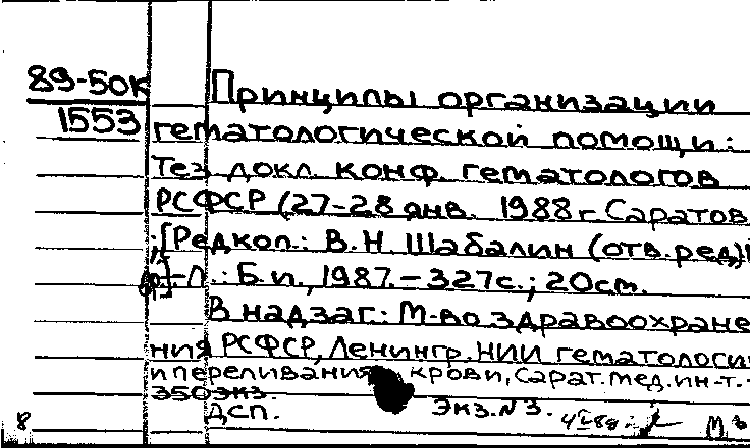 89-50к
1553
Принципы организации
гематологической помощи:
Тез. докл. конф. гематологов
РСФСР (27-28 янв. 1988 г. Саратов
; [Редкол.: В.Н. Шабалин (отв. ред.)
др.]. - Л.: Б.и., 1987. - 327с.; 20см.
В надзаг.: М-во здравоохране
ния РСФСР, Ленингр. НИИ гематологии
и переливания крови, Сарат. мед. ин-т. -
350экз.
ДСП. Экз. N 3.
8